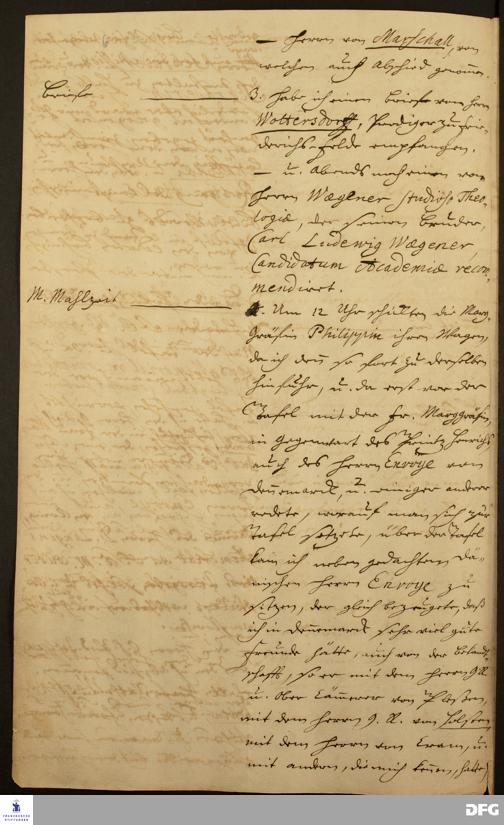 – Herrn von Marschall, von
welchen auch Abschied genommen.
Briefe
3. habe ich einen Brief von Herrn
Woltersdorff, Prediger zu Frie-
drichs-Felde empfangen.
– u. Abends noch einen von
Herrn Wægener Studioso Theo-
logiæ, der seinen Bruder,
Carl Ludewig Wægener
Candidatum Academiæ recom-
mendiret.
M. Mahlzeit
4. Um 12 Uhr schickten die Marg-
gräfin Philippin ihren Wagen,
da ich denn so fort zu derselben
hinfuhr, u. da erst vor der
Tafel mit der Fr. Marggräfin,
in Gegenwart des Printz Heinrichs
auch des Herrn Envoyé von
Dennemarck, u. einiger anderer
redete, worauf man sich zur
Tafel setzete, über der Tafel
kam ich neben gedachtem Dä-
nischen Herrn Envoyé zu
sitzen, der gleich bezeugete, daß
ich in Dennemarck sehr viel gute
Freunde hätte, auch von der Bekant-
schafft, so er mit dem Herrn G. R.
u. Ober Cämmerer von Plessen,
mit dem Herrn G. R. von Holsten
mit dem Herrn von Cram, u.
mit andern, die mich kennen, hätte,
FRANCKESCHE
STIFTUNGEN
DFG